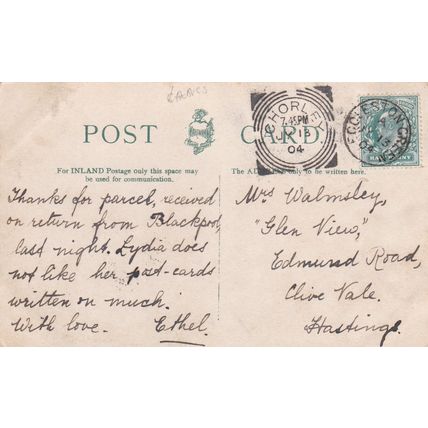 POST CARD.
For INLAND Postage only this space may
be used for communication.
The ADDRESS only to be written here.
CHORLEY
7.45PM
JY 13
04
ECCLESTON GREEN
JY 13
04
HALFPENNY
Thanks for parcel, received
on return from Blackpool,
last night. Lydia does
not like her post-cards
written on much.
With love. Ethel.
Mrs Walmsley,
"Glen View,
Edmund Road,
Clive Vale.
Hastings.